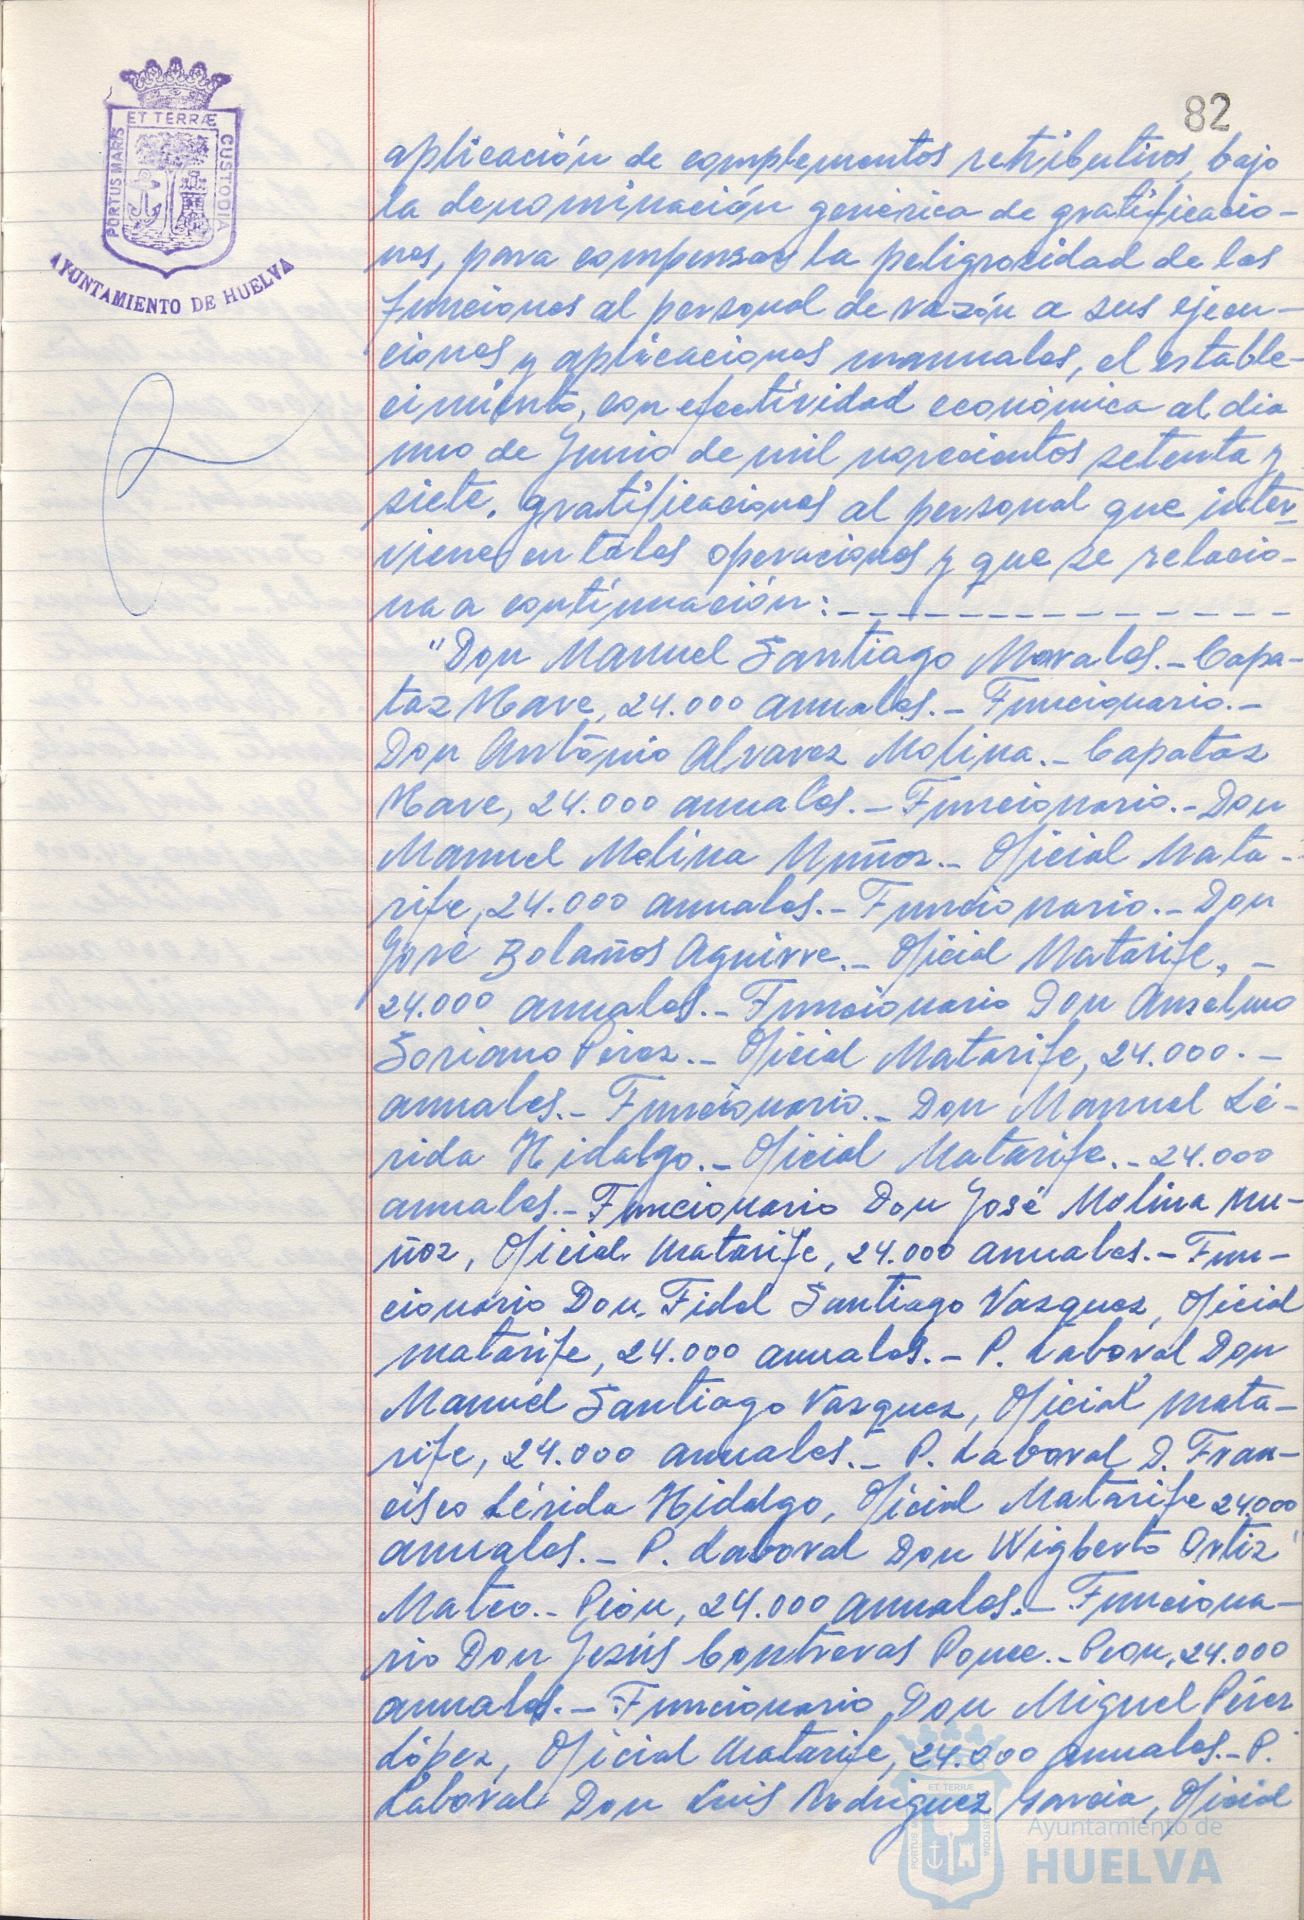 82
ET TERRÆ
PORTUS MARIS
CUSTODIA
AYUNTAMIENTO DE HUELVA
aplicación de complementos retributivos, bajo
la denominación genérica de gratificacio-
nes, para compensar la peligrosidad de las
funciones al personal de razón a sus ejecu-
ciones y aplicaciones manuales, el estable-
cimiento, con efectividad económica al dia
uno de Junio de mil novecientos setenta y
siete, gratificaciones al personal que inter-
viene en tales operaciones y que se relacio-
na a continuación: - - - - - - - - - - - - - -
"Don Manuel Santiago Morales.- Capa-
taz Nave, 24.000 anuales.- Funcionario.-
Don Antonio Alvarez Molina.- Capataz
Nave, 24.000 anuales.- Funcionario.- Don
Manuel Molina Muñoz.- Oficial Mata-
rife, 24.000 anuales.- Funcionario.- Don
José Bolaños Aguirre.- Oficial Matarife, -
24.000 anuales.- Funcionario Don Anselmo
Soriano Pérez.- Oficial Matarife, 24.000.-
anuales.- Funcionario.- Don Manuel Lé-
rida Hidalgo.- Oficial Matarife.- 24.000
anuales.- Funcionario Don José Molina Mu-
ñoz, Oficial Matarife, 24.000 anuales.- Fun-
cionario Don Fidel Santiago Vazquez, Oficial
matarife, 24.000 anuales.- P. Laboral Don
Manuel Santiago Vázquez, Oficial mata-
rife, 24.000 anuales.- P. Laboral D. Fran-
cisco Lérida Hidalgo, Oficial Matarife 24.000
anuales.- P. Laboral Don Wigberto Ortiz
Mateo.- Peón, 24.000 anuales.- Funciona-
rio Don Jesús Contreras Ponce.- Peon, 24.000
anuales.- Funcionario Don Miguel Pérez
López, Oficial Matarife, 24.000 anuales.- P.
Laboral Don Luis Rodriguez Garcia, Oficial
Ayuntamiento de
HUELVA